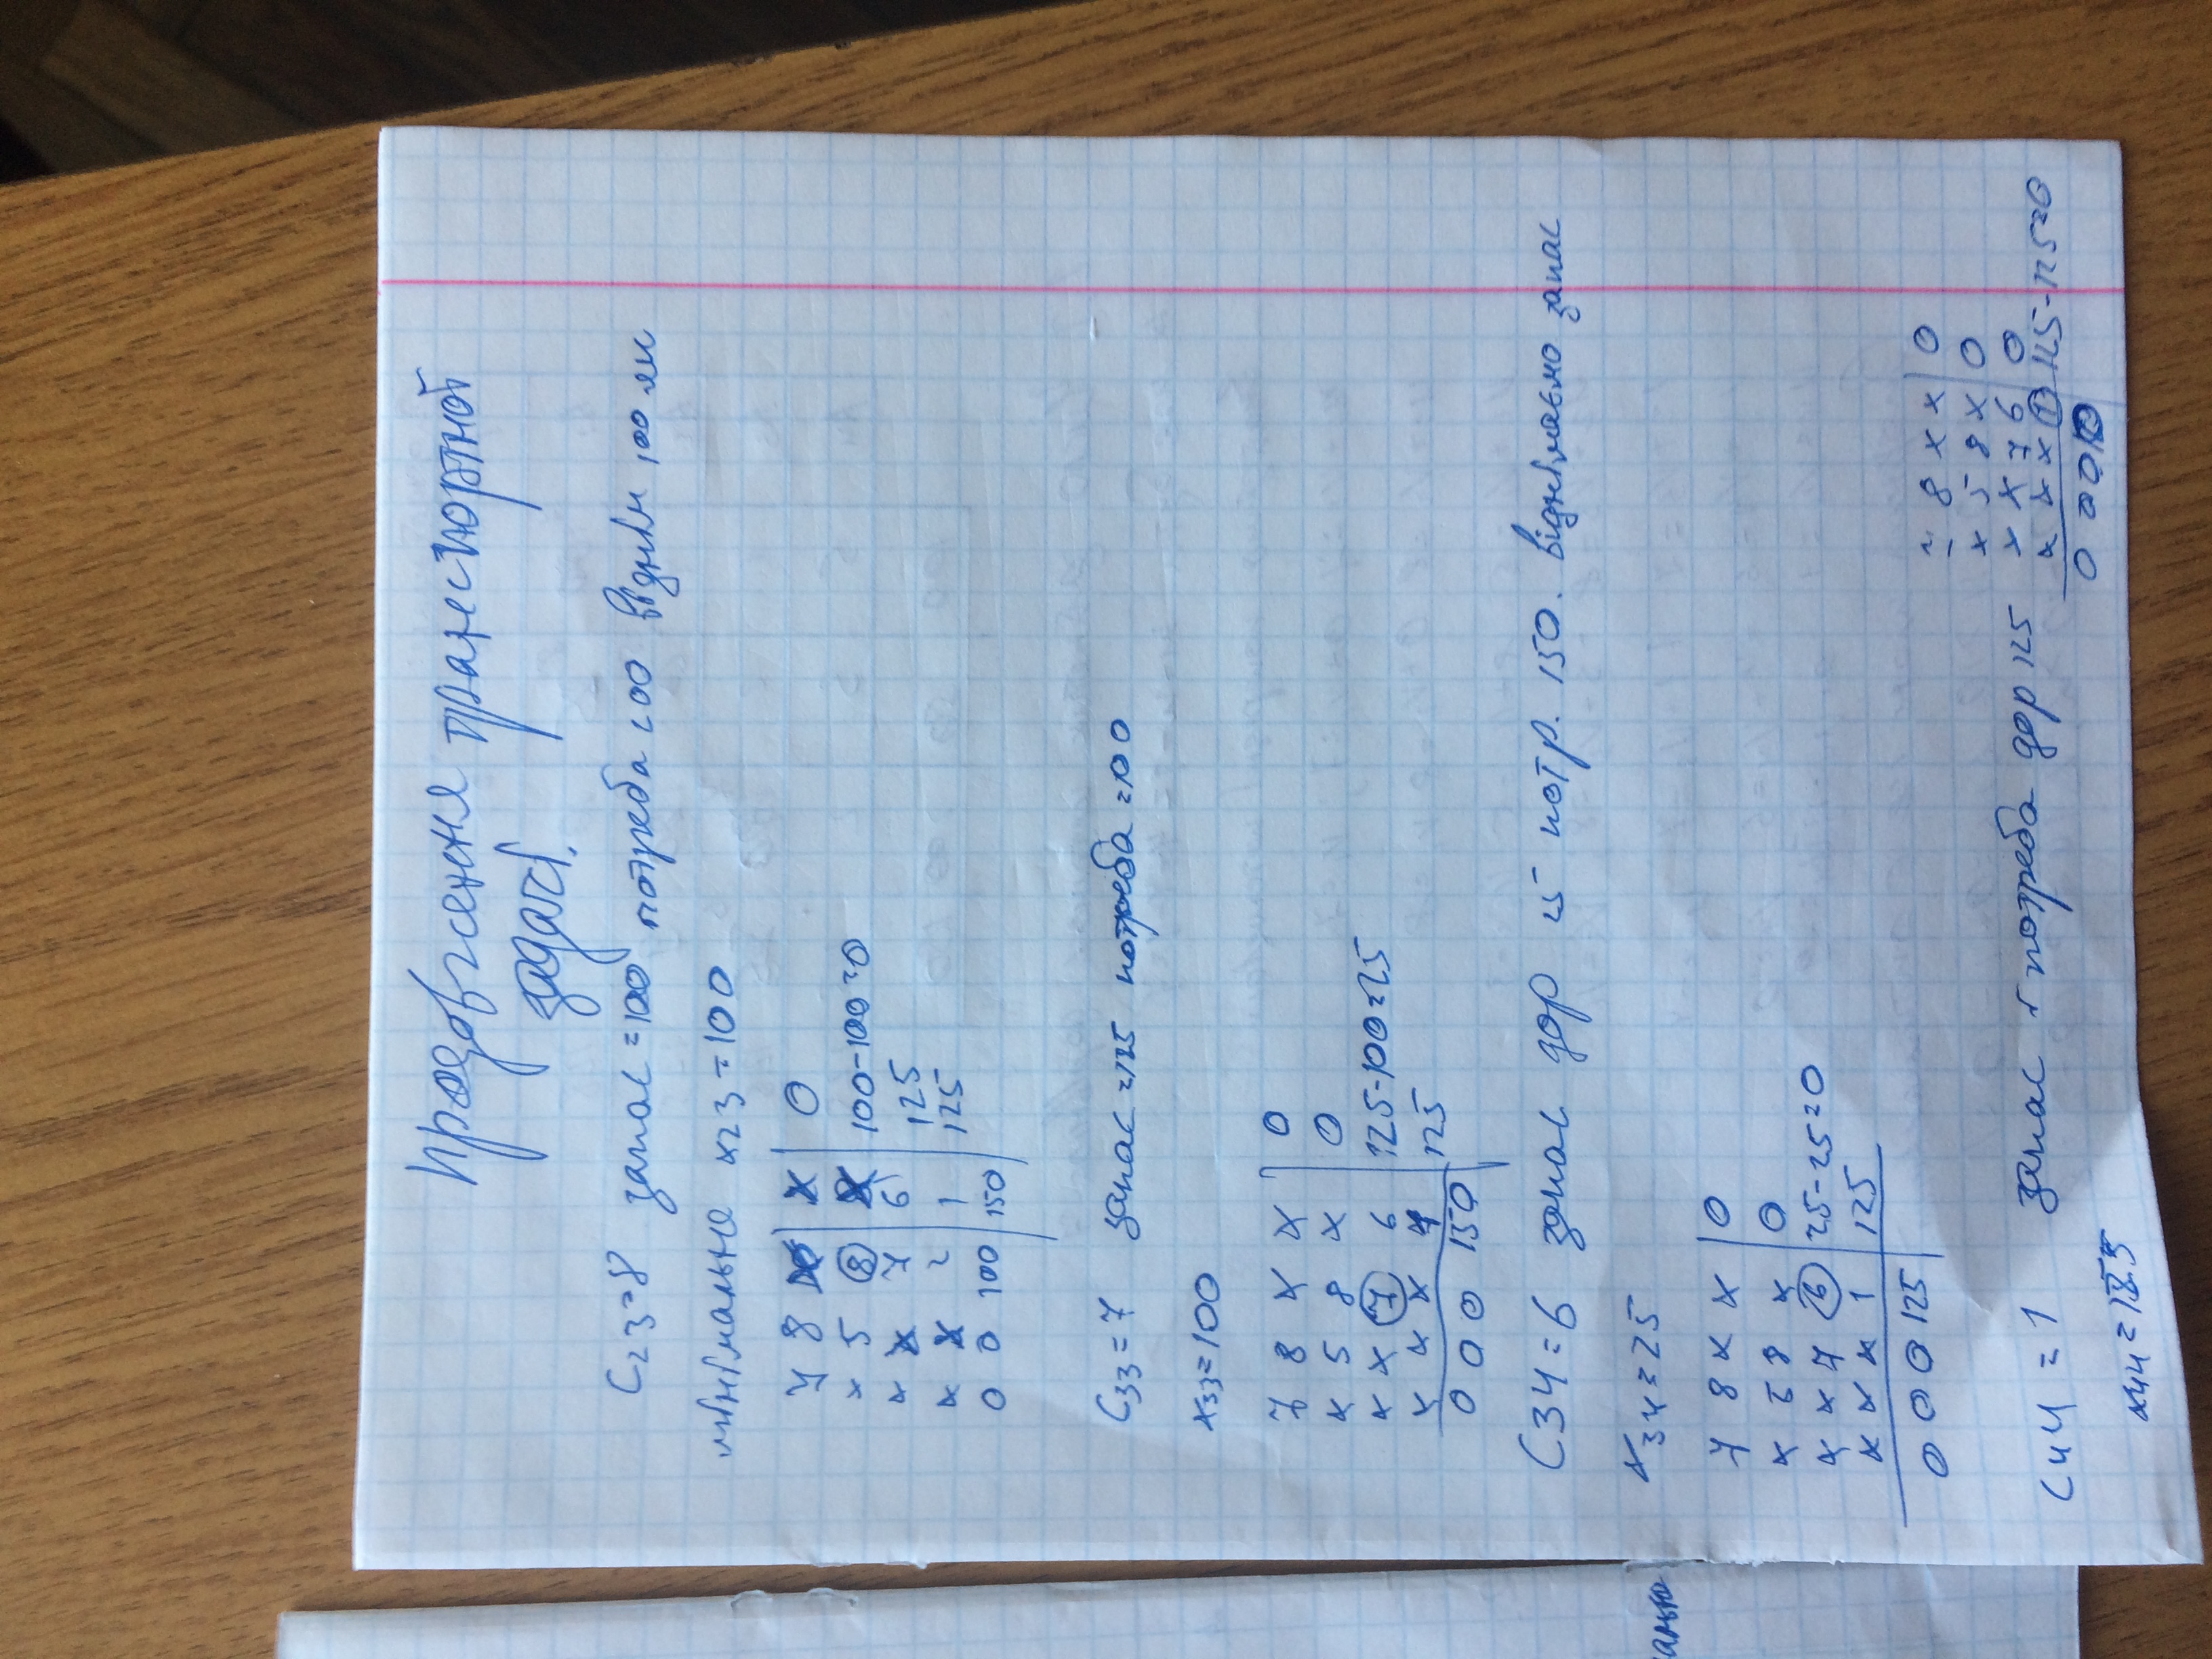 Продовження транспортної
задачі.
C23=8 запас =100 потреба 200 віднім 100 як
мінімальне x23=100
7 8 x x 0
x 5 8 x 100-100=0
x x 7 6 125
x x 2 1 125
0 0 100 150
C33=7 запас =125 потреба =100
x33=100
7 8 x x 0
x 5 8 x 0
x x 7 6 125-100=25
x x x 1 125
0 0 0 150
C34=6 запас дор 25 потр. 150. віднімаємо запас
x34=25
7 8 x x 0
x 5 8 x 0
x x 7 6 25-25=0
x x x 1 125
0 0 0 125
8 x x 0
x 5 8 x 0
x x 7 6 0
C44=1 запас і потреба дор 125
x x x 1 125-125=0
0 0 0 0
x44=125